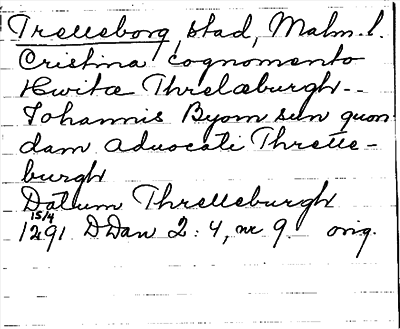 Trelleborg, stad, Malm. l.
Cristina cognomento
Hwitæ Threlæburgh --
Johannis Byorn sun quon
dam aduocati Threlle-
burgh
Datum Threlleburgh
15/4
1291 DDan 2:4, nr 9. orig.